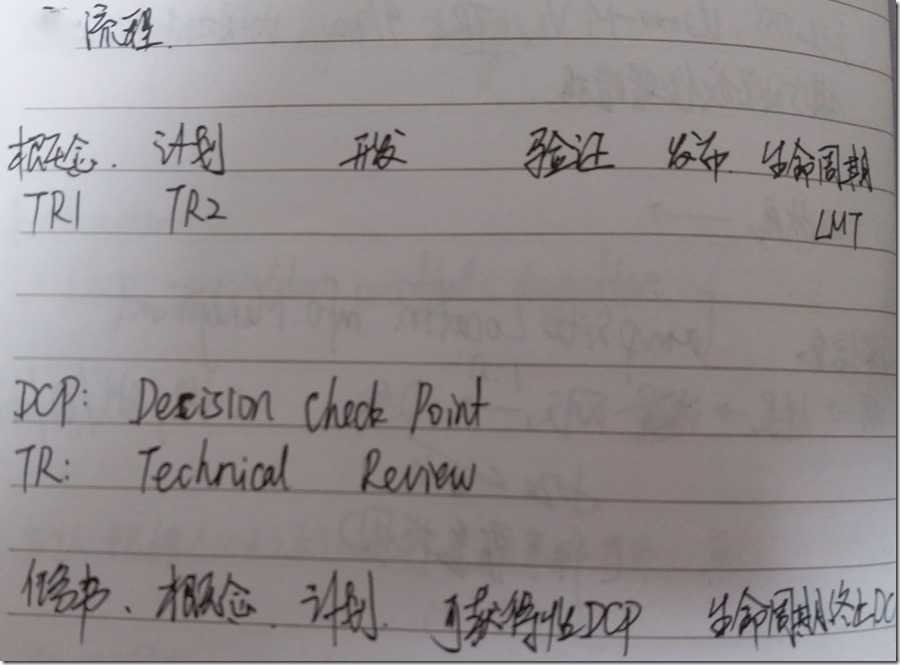 流程.
概念. 计划 开发 验证 发布. 生命周期
TR1 TR2 LMT
DCP: Decision Check Point
TR: Technical Review
任务书、概念. 计划. 可获得性DCP 生命周期终止DC